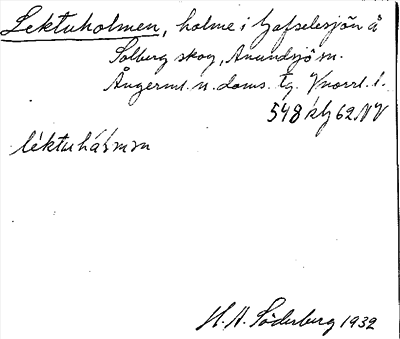 Lektuholmen, holme i Gafselesjön å
Solberg skog, Anundsjö sn.
Ångerml. n. doms. tg. Vnorrl. l.
548 klq 62 NV
léktuhǻɫmɔn
H. A. Söderberg 1932